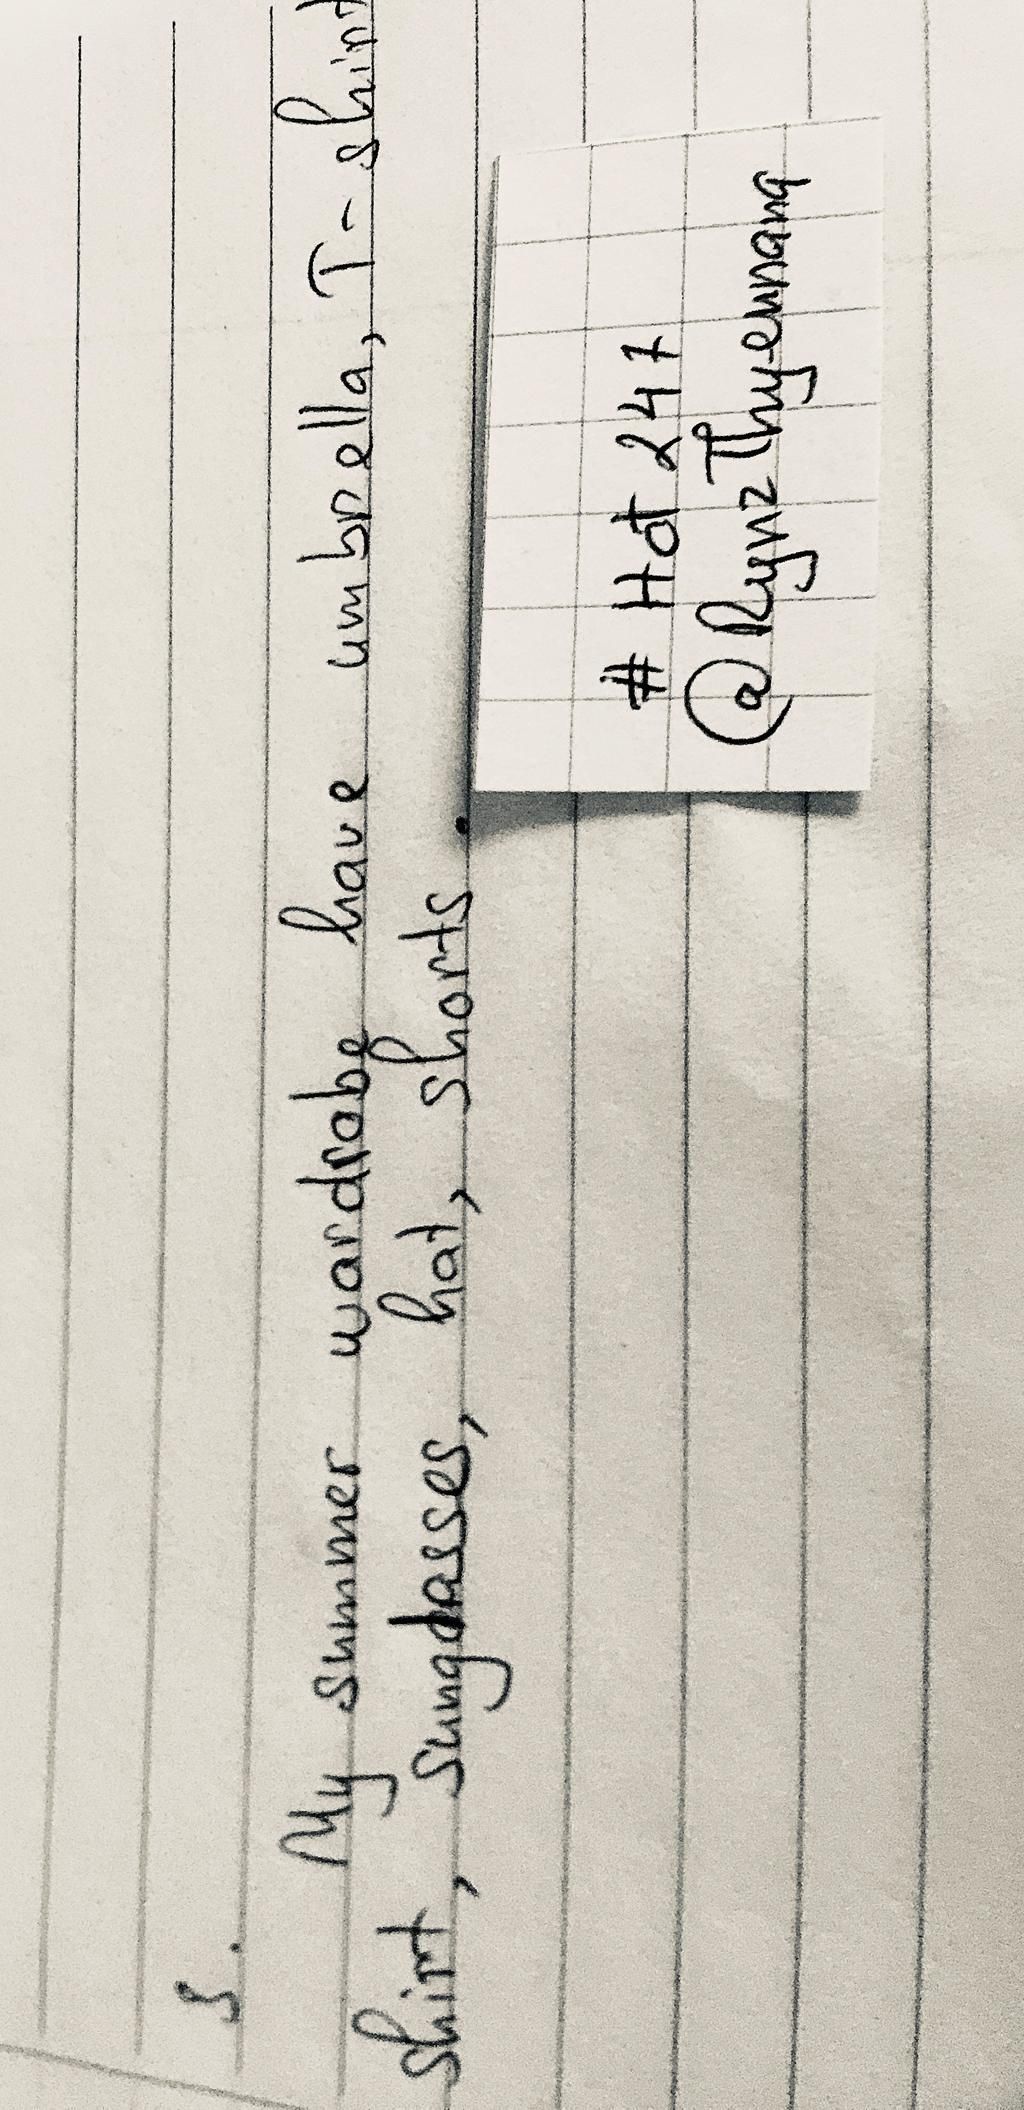 S.
My summer wardrobe have umbrella, T-shirt
shirt, sunglasses, hat, shorts.
# Hot 247
@RynzThyeunang